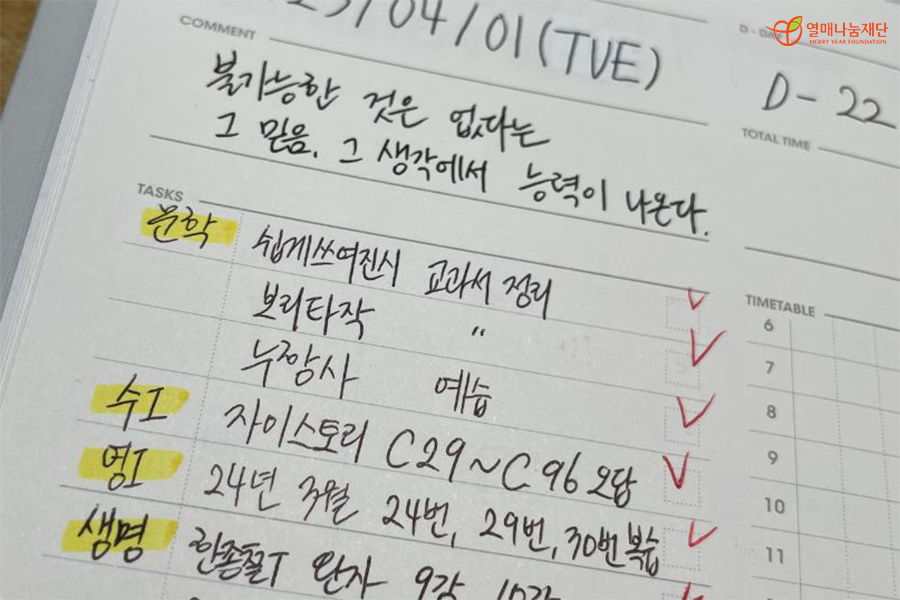 열매나눔재단
MERRY YEAR FOUNDATION
/04/01(TUE)
COMMENT
불가능한 것은 없다는
그 믿음. 그 생각에서 능력이 나온다.
D-22
TOTAL TIME
TASKS
문학 쉽게쓰여진시 교과서 정리
보리타작 〃
누항사 예습
수I 자이스토리 C29~C96 오답
영I 24년 3월 24번, 29번, 30번 복습
생명 한종철T 완자 9강 10강
TIMETABLE
6
7
8
9
10
11